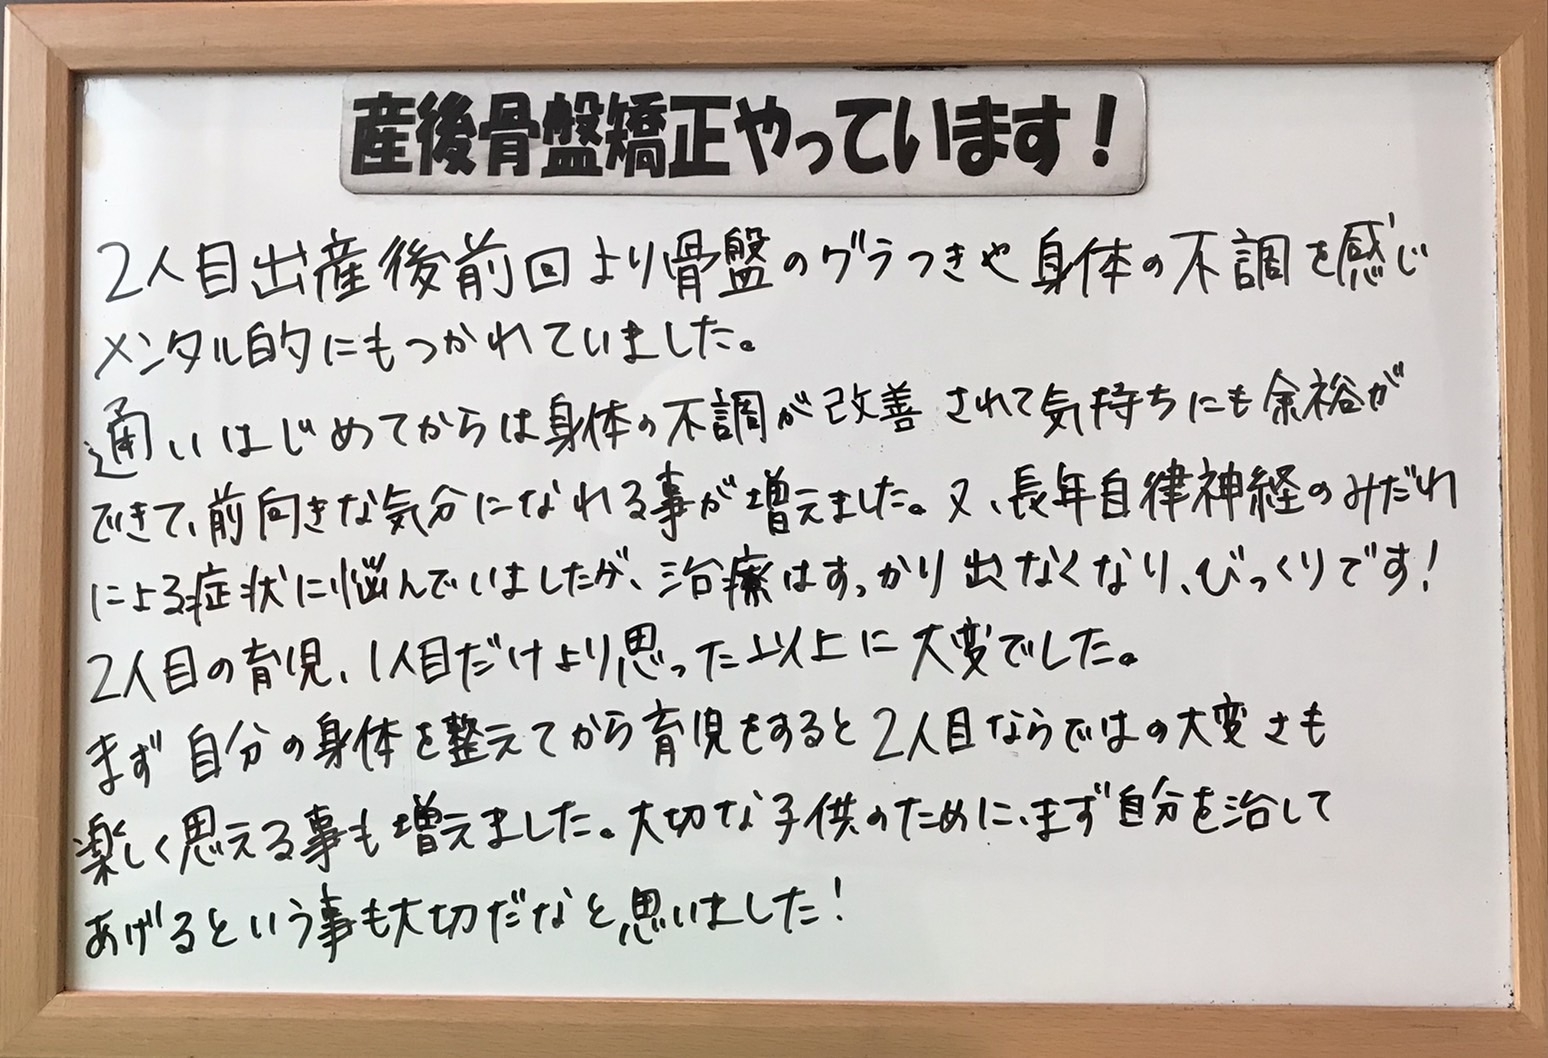 産後骨盤矯正やっています！
2人目出産後前回より骨盤のグラつきや身体の不調を感じ
メンタル的にもつかれていました。
通いはじめてからは身体の不調が改善されて気持ちにも余裕が
できて、前向きな気分になれる事が増えました。又、長年自律神経のみだれ
による症状に悩んでいましたが、治療はすっかり出なくなり、びっくりです！
2人目の育児、1人目だけより思った以上に大変でした。
まず自分の身体を整えてから育児をすると2人目ならではの大変さも
楽しく思える事も増えました。大切な子供のために、まず自分を治して
あげるという事も大切だなと思いました！